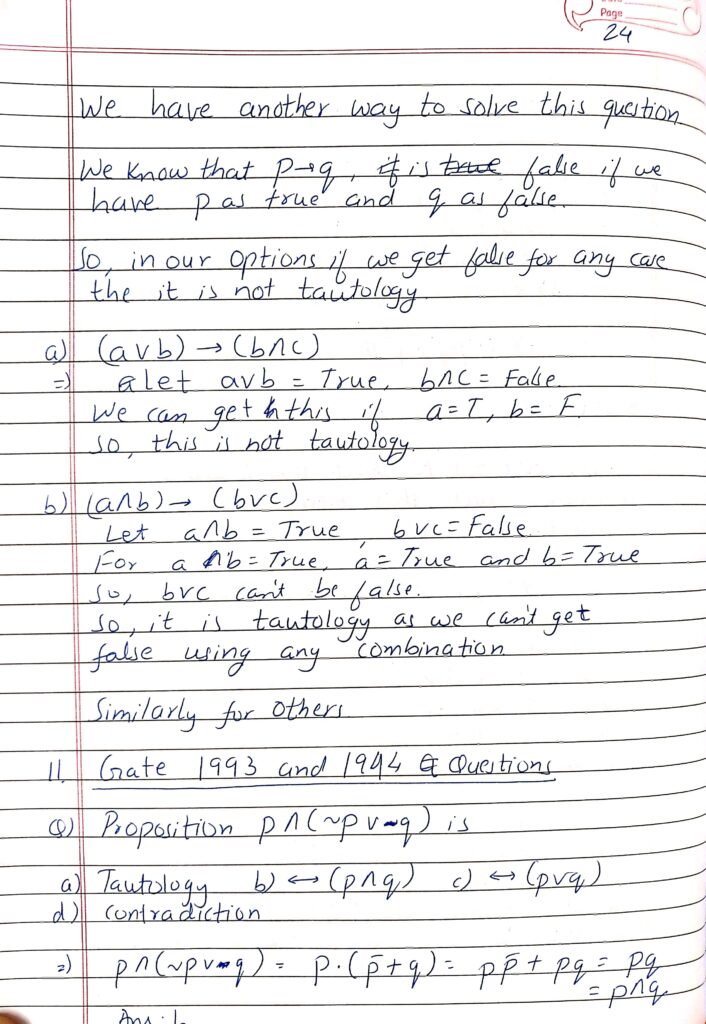 Page
24
We have another way to solve this question
We know that p→q, it is true false if we
have p as true and q as false.
So, in our options if we get false for any case
the it is not tautology.
a) (a∨b) → (b∧c)
=) let a∨b = True, b∧c = False.
We can get this if a=T, b= F
so, this is not tautology.
b) (a∧b) → (b∨c)
Let a∧b = True, b∨c = False
For a ∧b = True, a = True and b = True
So, b∨c can't be false.
So, it is tautology as we can't get
false using any combination
Similarly for others
11. Gate 1993 and 1994 Questions
Q) Proposition p∧(~p∨q) is
a) Tautology b) ↔ (p∧q) c) ↔ (p∨q)
d) contradiction
=) p∧(~p∨q) = p.(p̄+q) = pp̄ + pq = pq
= p∧q
Ans: